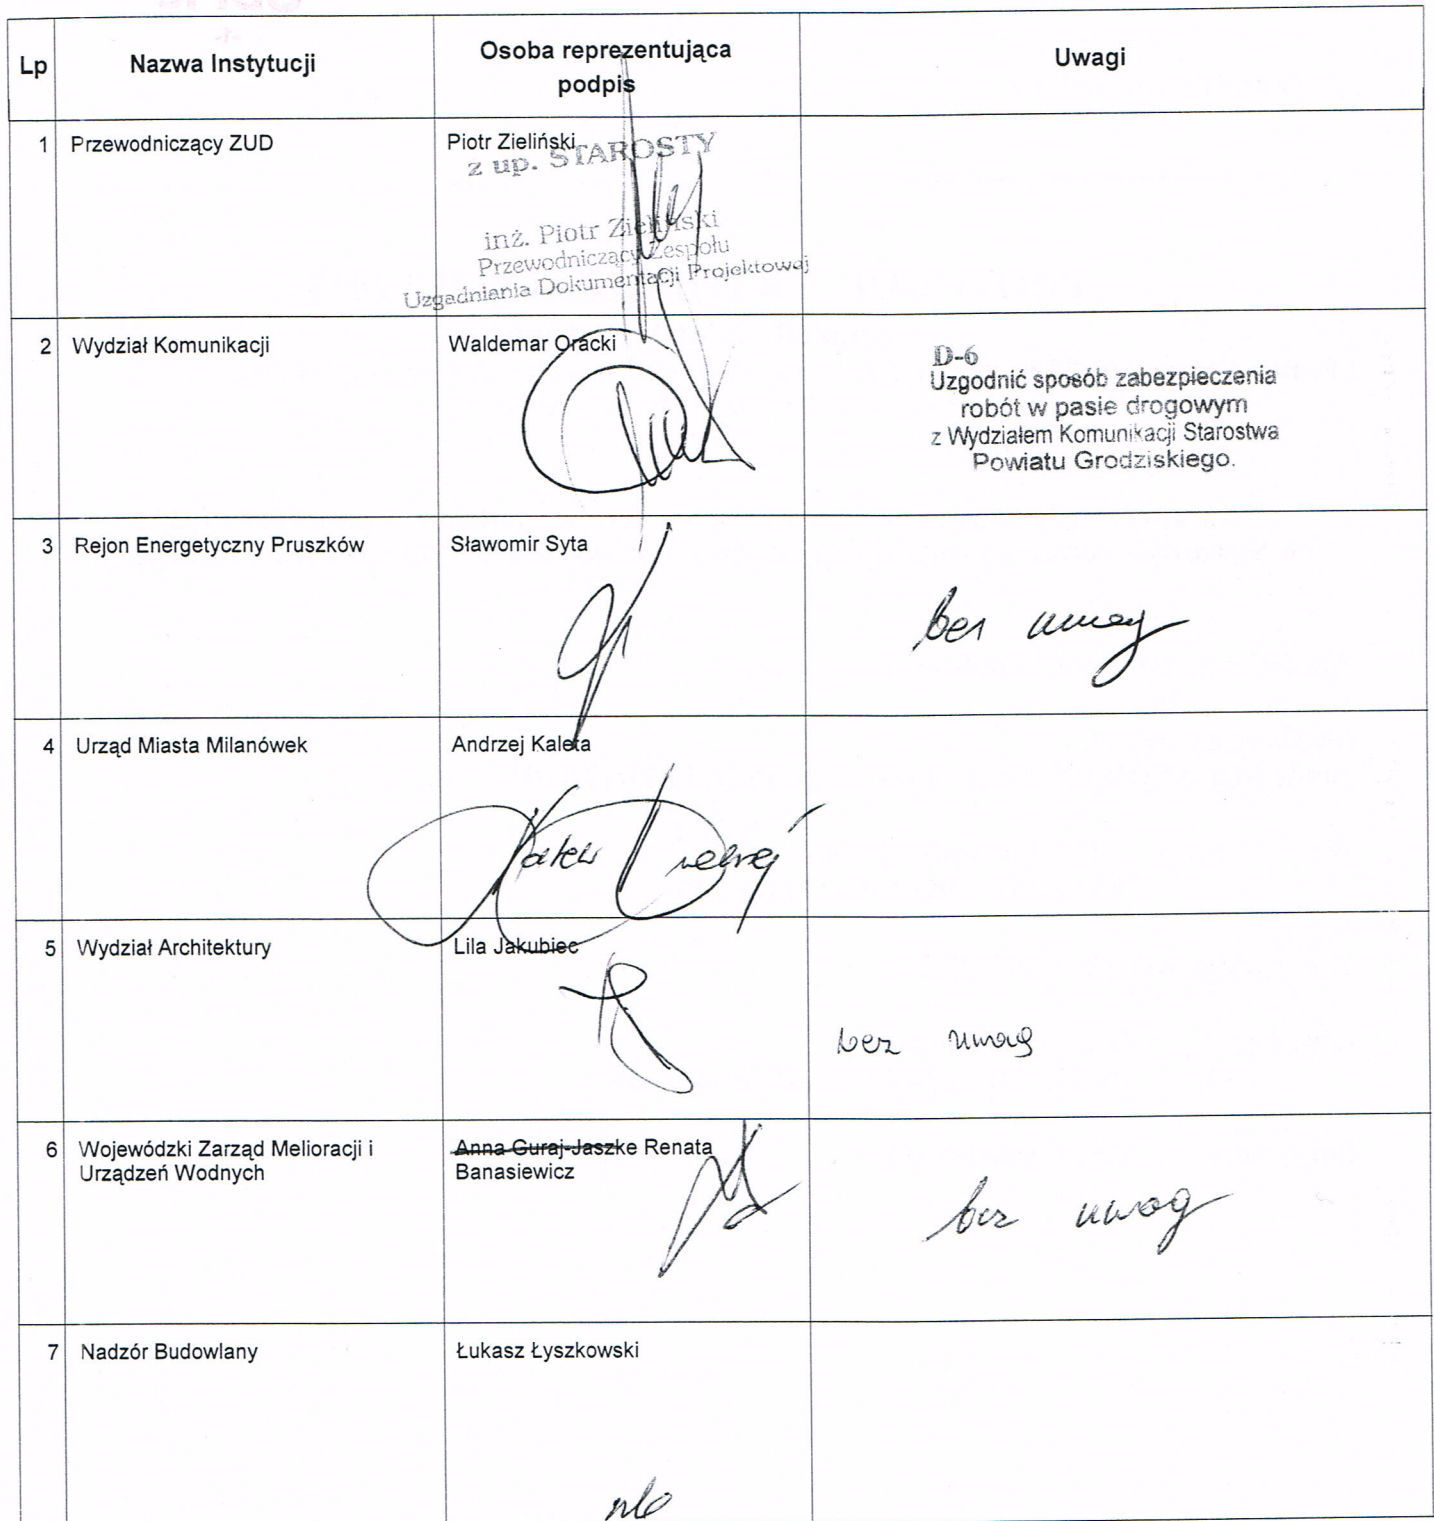 Lp
Nazwa Instytucji
Osoba reprezentująca
podpis
Uwagi
1
Przewodniczący ZUD
Piotr Zieliński
z up. STAROSTY
inż. Piotr Zieliński
Przewodniczący Zespołu
Uzgadniania Dokumentacji Projektowej
2
Wydział Komunikacji
Waldemar Oracki
D-6
Uzgodnić sposób zabezpieczenia
robót w pasie drogowym
z Wydziałem Komunikacji Starostwa
Powiatu Grodziskiego.
3
Rejon Energetyczny Pruszków
Sławomir Syta
bez uwag
4
Urząd Miasta Milanówek
Andrzej Kaleta
5
Wydział Architektury
Lila Jakubiec
bez uwag
6
Wojewódzki Zarząd Melioracji i
Urządzeń Wodnych
Anna Guraj-Jaszke Renata
Banasiewicz
bez uwag
7
Nadzór Budowlany
Łukasz Łyszkowski